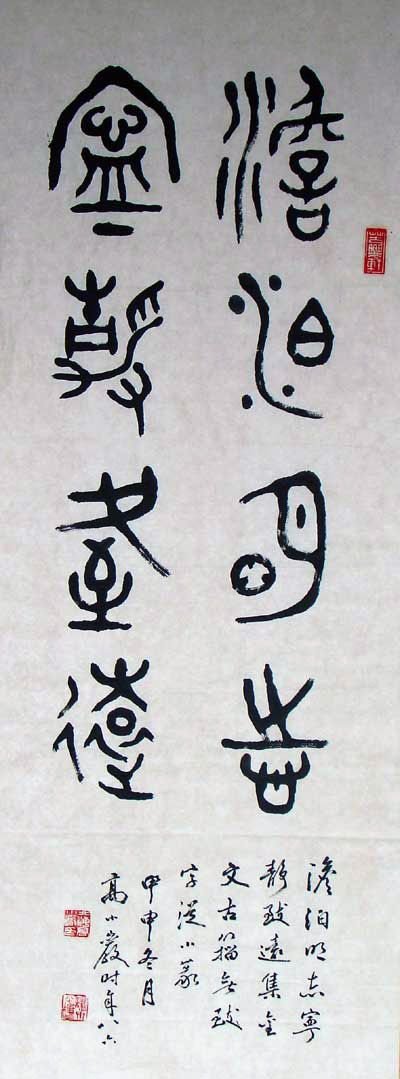 澹泊明志
寧靜致遠
澹泊明志寧
靜致遠集金
文古籀無致
字從小篆
甲申冬月
高小巖时年八六